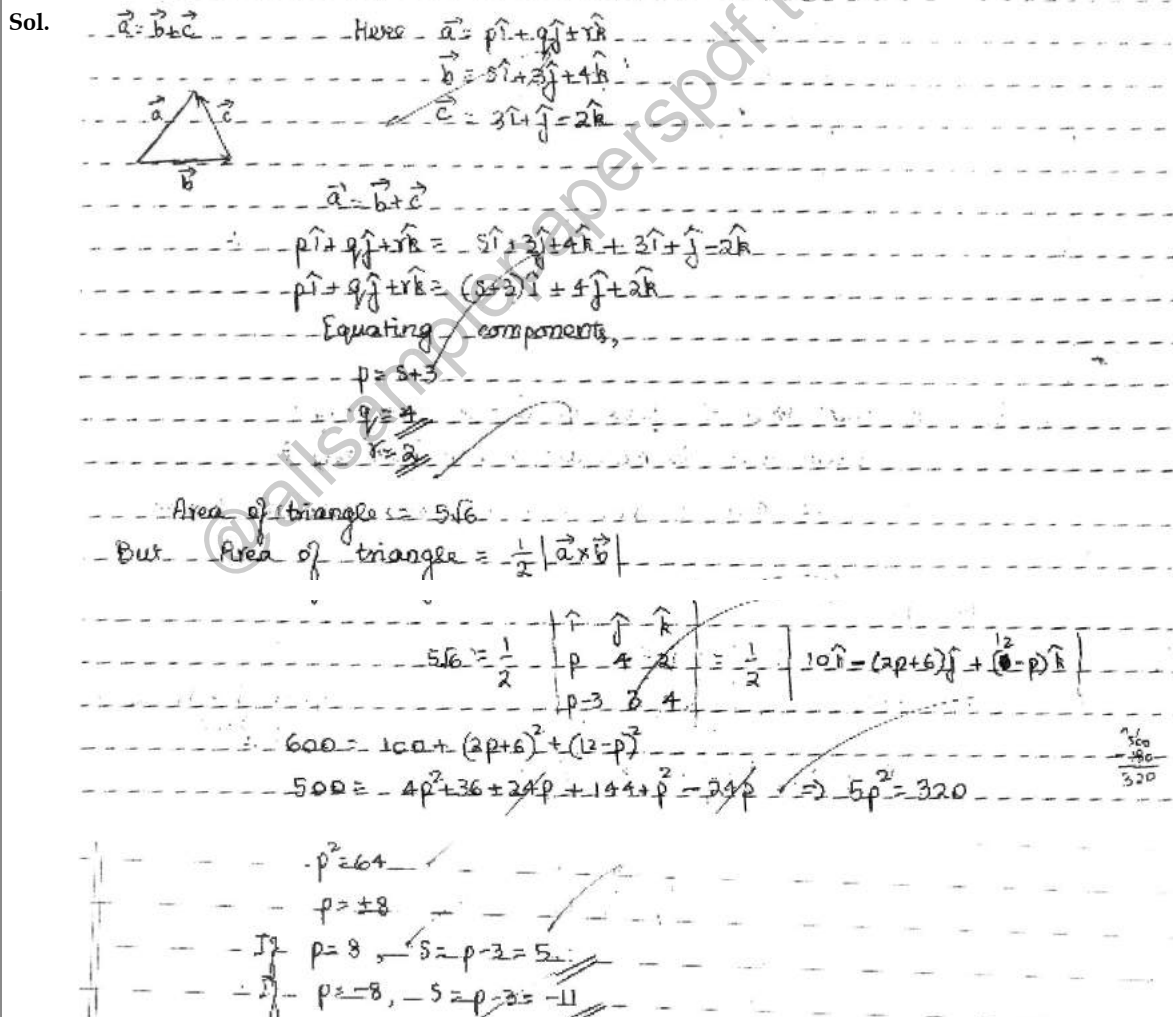 Sol. a⃗ = b⃗ + c⃗ Here a⃗ = pî + qĵ + rk̂
b⃗ = sî + 3ĵ + 4k̂
c⃗ = 3î + ĵ - 2k̂
a⃗ c⃗
b⃗
a⃗ = b⃗ + c⃗
∴ pî + qĵ + rk̂ = sî + 3ĵ + 4k̂ + 3î + ĵ - 2k̂
pî + qĵ + rk̂ = (s+3)î + 4ĵ + 2k̂
Equating components,
p = s+3
q = 4
r = 2
Area of triangle = 5√6
But Area of triangle = 1/2 |a⃗ × b⃗|
5√6 = 1/2 | î ĵ k̂ | = 1/2 | 10î - (2p+6)ĵ + (12-p)k̂ |
| p 4 2 |
| p-3 3 4 |
∴ 600 = 100 + (2p+6)² + (12-p)²
500 = 4p² + 36 + 24p + 144 + p² - 24p ⇒ 5p² = 320
500
-180
320
p² = 64
p = ±8
If p = 8, s = p-3 = 5
If p = -8, s = p-3 = -11
@allsamplepaperspdf